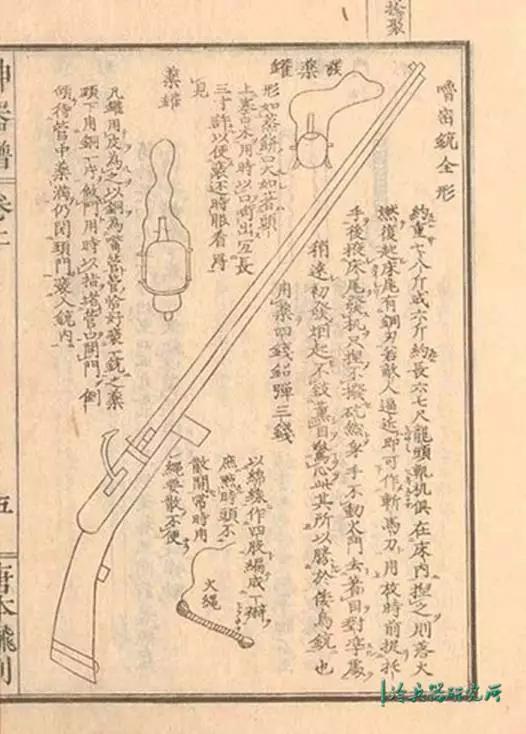 嚕密銃全形
約重七八斤或六斤約長六七尺龍頭軌机俱在床內揑之則落火
燃復起床尾有鋼刃若敵人逼近即可作斬馬刀用放時前捉托
手後掖床尾發机只揑不撥砣然身手不動火門去着目對準處
稍遠初發烟起不致薰目驚心此其所以勝於倭鳥銃也
用藥四錢鉛彈三錢
發藥罐
形如蒸餅口大如箸頭
上塞口木用時以口啣出冝長
三寸許以便裝还時眼看得
見
藥罐
凡罐用皮為之以銅為嘴管管恰好裝一銃之藥
頭下用銅一片做門用時以指堵管口開門倒
傾待管中藥滿仍閉頭門裝入銃內
以綿線作四股編成一辮
庶燃時頭不
散開常時用
繩要散不便
火繩
神器譜 卷二
五
唐本飜刻
冷兵器研究所